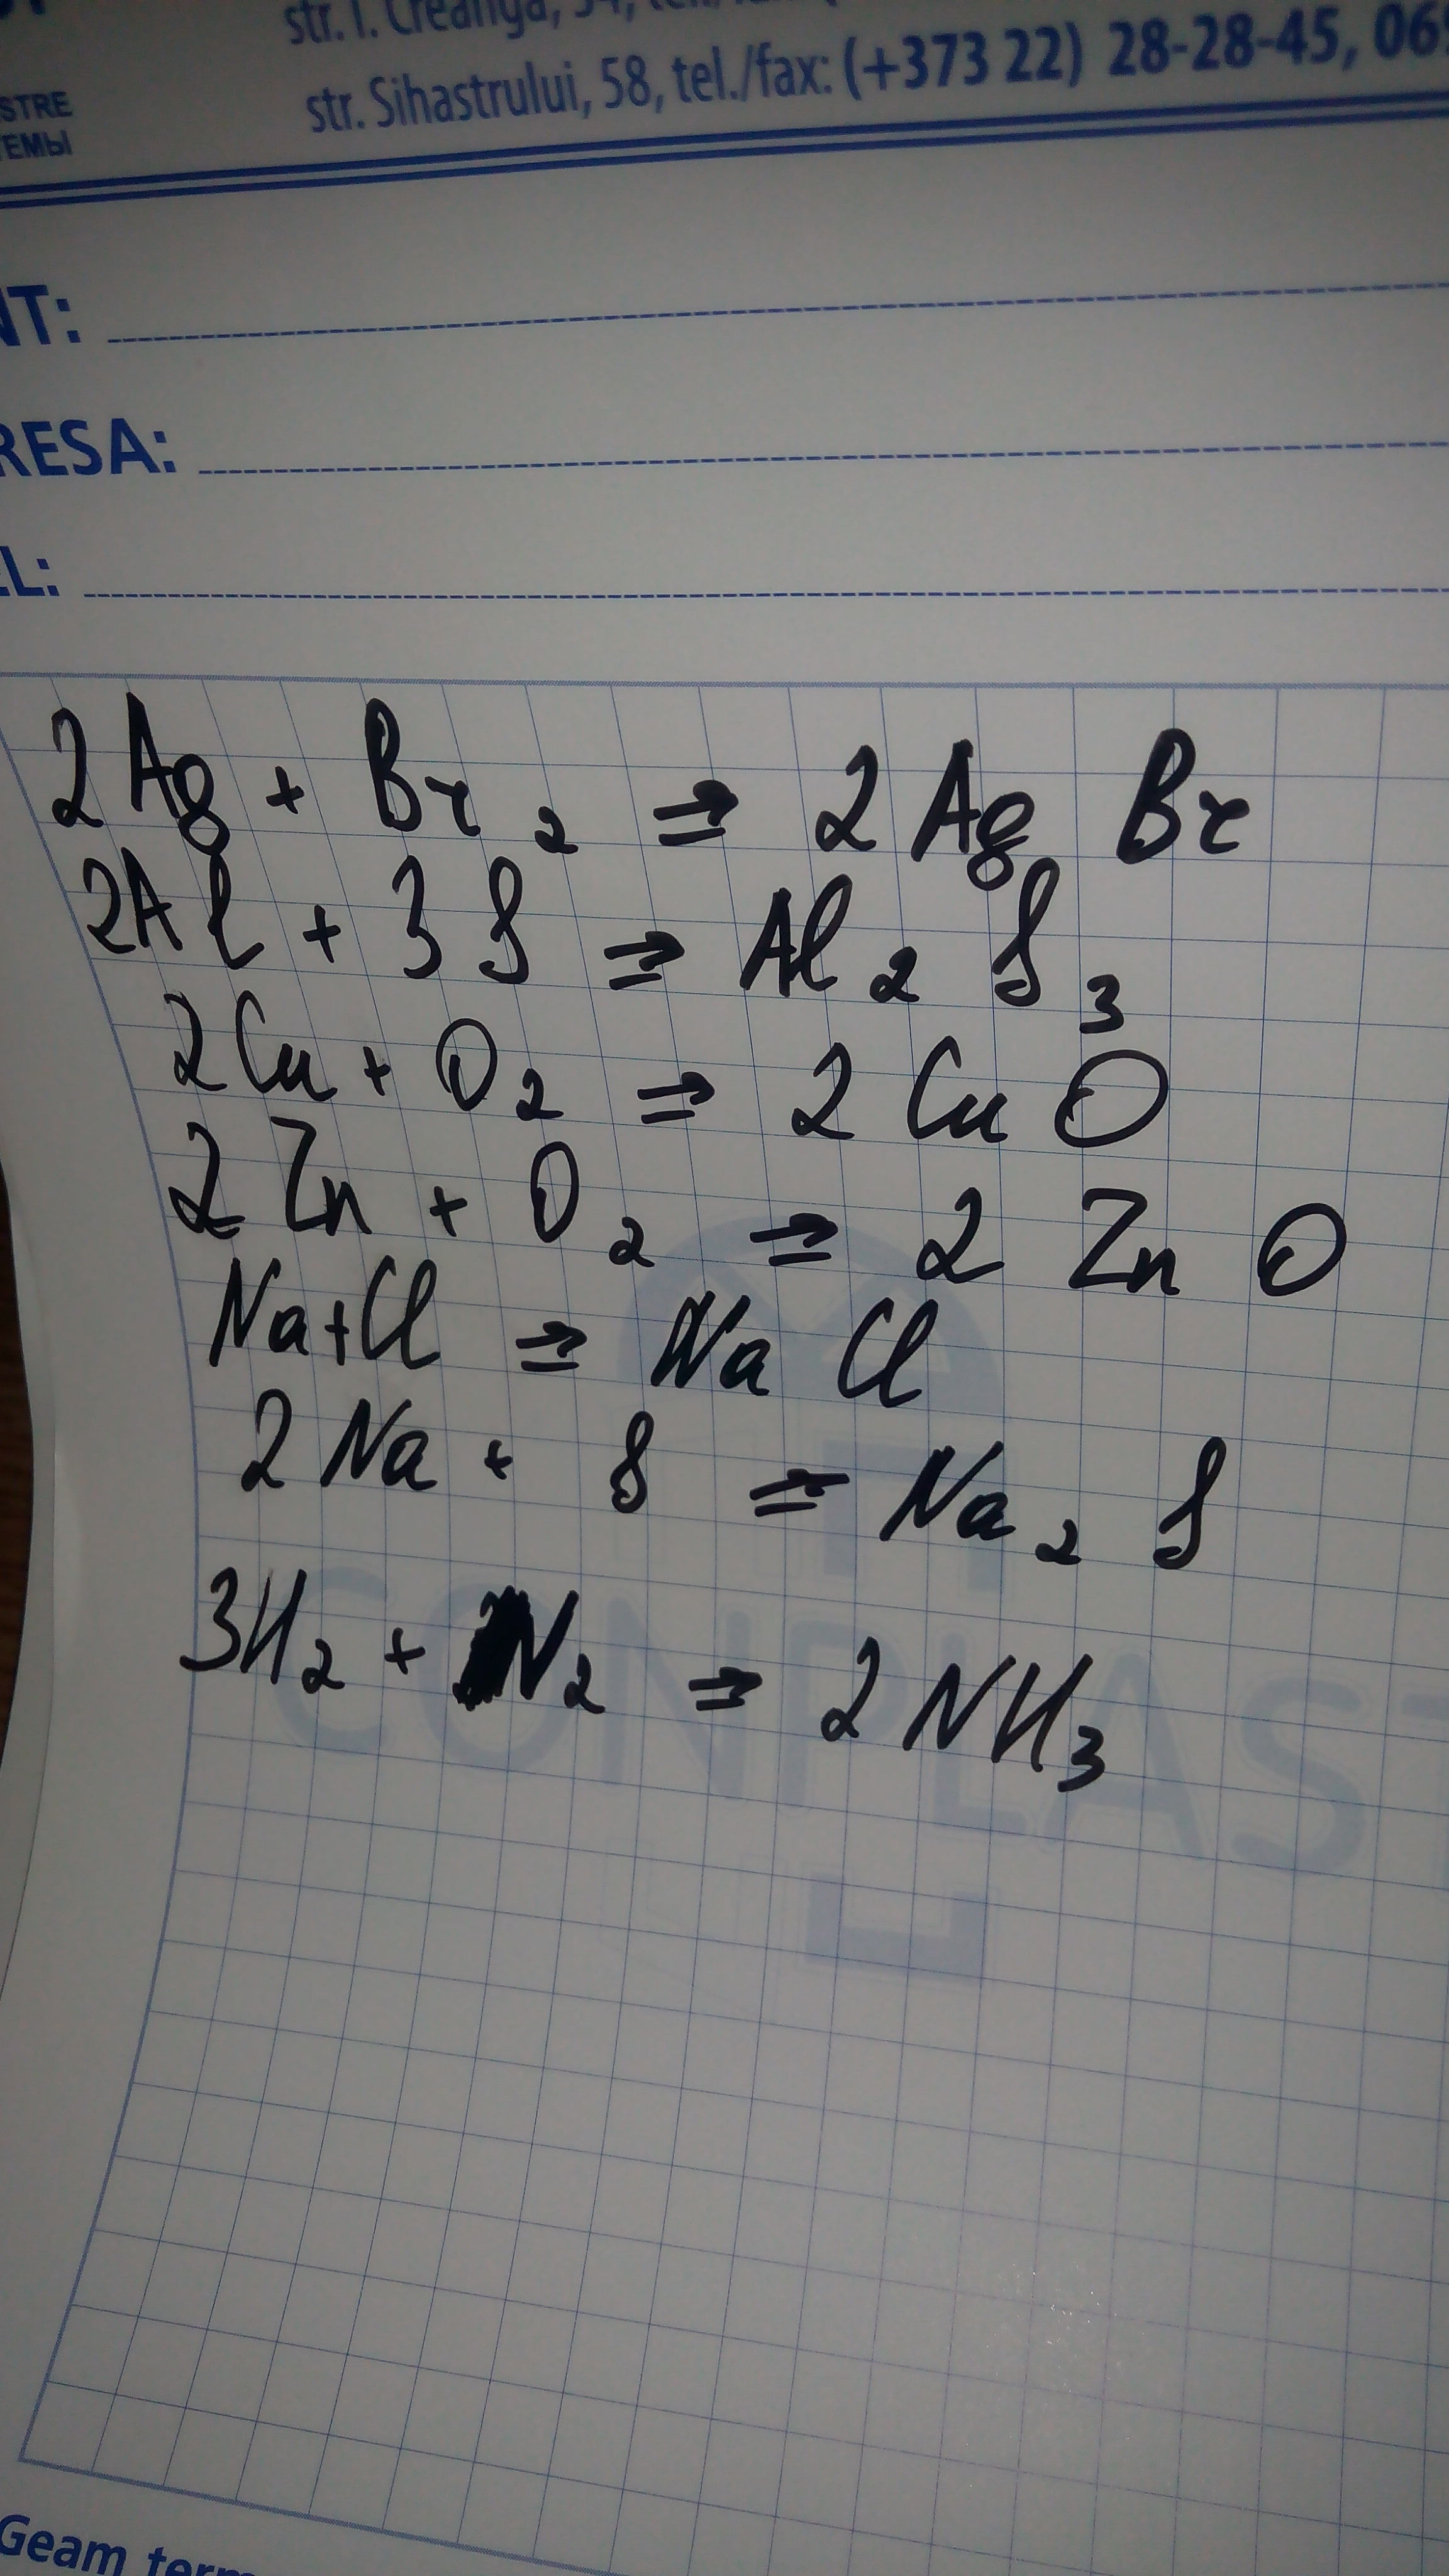 str. I. Creangă, 54, tel./fax: (
str. Sihastrului, 58, tel./fax: (+373 22) 28-28-45, 069
STRE
ТЕМЫ
NT:
RESA:
EL:
2Ag + Br₂ ⇒ 2AgBr
2Al + 3S ⇒ Al₂S₃
2Cu + O₂ ⇒ 2CuO
2Zn + O₂ ⇒ 2ZnO
Na+Cl ⇒ NaCl
2Na + S ⇒ Na₂S
3H₂ + N₂ ⇒ 2NH₃
CONPLAST
Geam term